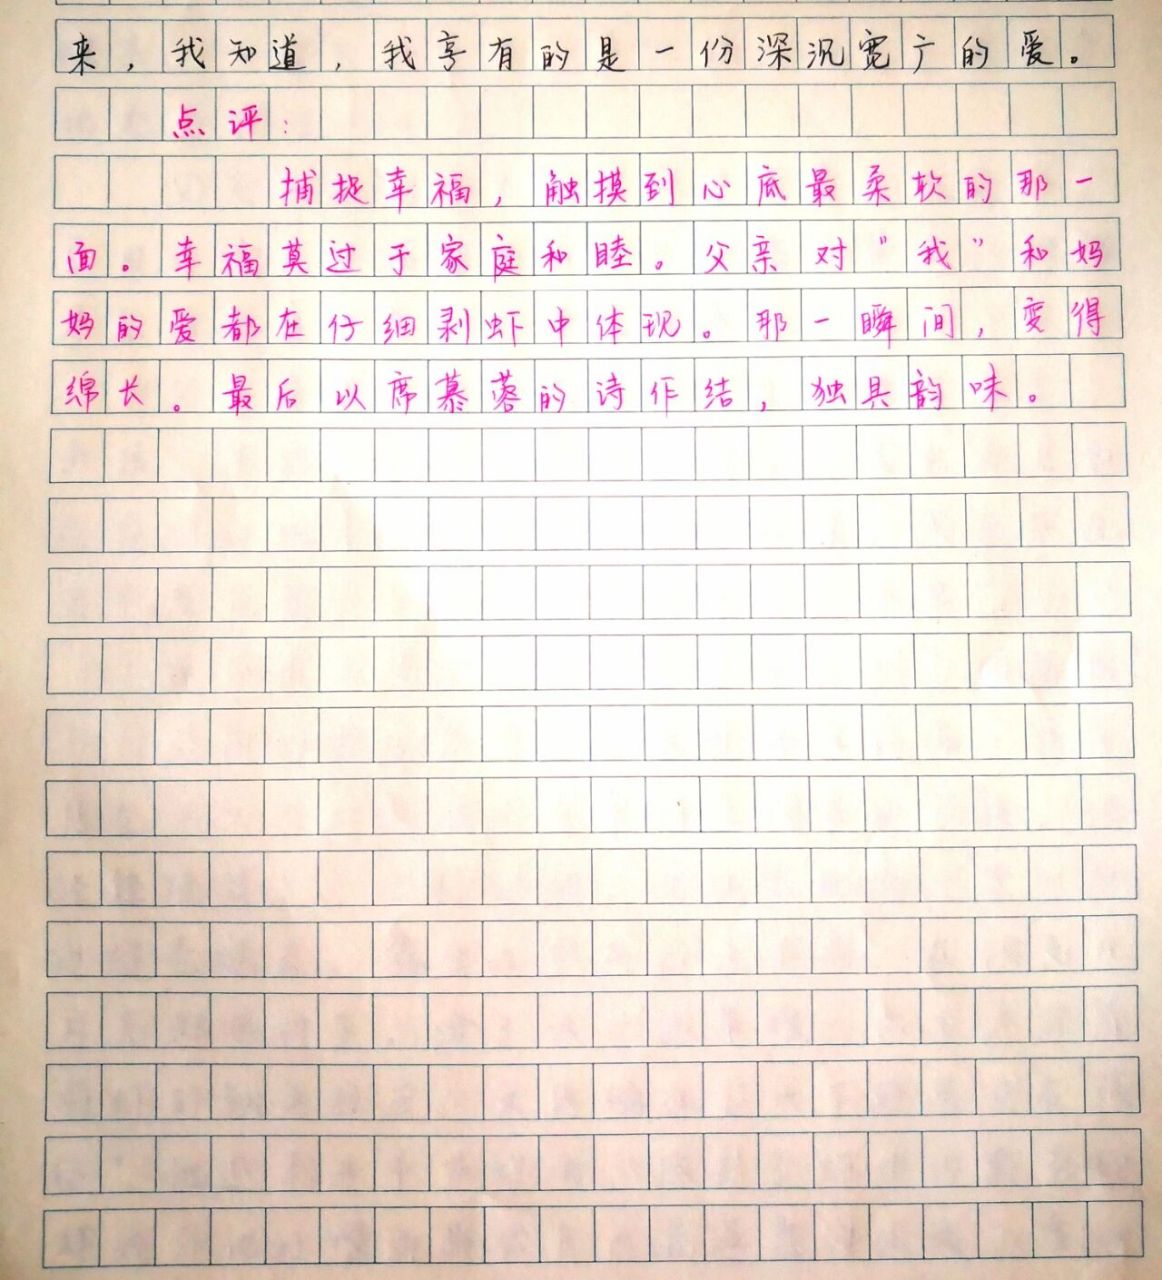 来，我知道，我享有的是一份深沉宽广的爱。
点评：
捕捉幸福，触摸到心底最柔软的那一
面。幸福莫过于家庭和睦。父亲对“我”和妈
妈的爱都在仔细剥虾中体现。那一瞬间，变得
绵长。最后以席慕蓉的诗作结，独具韵味。